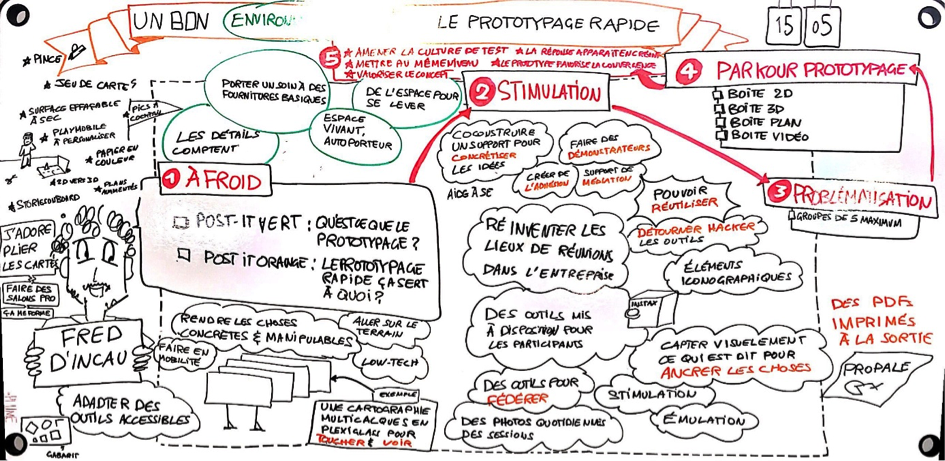 UN BON
ENVIRON
LE PROTOTYPAGE RAPIDE
15
05
5
★ AMENER LA CULTURE DE TEST
★ LA RÉPONSE APPARAIT EN
★ METTRE AU MÊME NIVEAU
★ LE PROTOTYPE FAVORISE LA CONVERGENCE
★ VALORISER LE CONCEPT
★ PINCE
★ JEU DE CARTES
★ SURFACE EFFAÇABLE
À SEC
★ PICS À
COCKTAIL
★ PLAYMOBILE
À PERSONALISER
★ PAPIER EN
COULEUR
★ 2D VERS 3D
★ PLANS
AUGMENTÉS
★ STORYBOARD
PORTER UN SOIN À DES
FOURNITORES BASIQUES
DE L'ESPACE POUR
SE LEVER
ESPACE
VIVANT,
AUTOPORTEUR
LES DÉTAILS
COMPTENT
1 À FROID
POST-IT VERT : QU'EST CE QUE LE
PROTOTYPAGE ?
POST IT ORANGE : LE PROTOTYPAGE
RAPIDE ÇA SERT
À QUOI ?
2 STIMULATION
COCONSTRUIRE
UN SUPPORT POUR
CONCRÉTISER
LES IDÉES
FAIRE DES
DÉMONSTRATEURS
CRÉER DE
L'ADHÉSION
SUPPORT DE
MÉDIATION
AIDE À SE
RÉINVENTER LES
LIEUX DE RÉUNIONS
DANS L'ENTREPRISE
POUVOIR
RÉUTILISER
DÉTOURNER HACKER
LES OUTILS
ÉLÉMENTS
ICONOGRAPHIQUES
INSTAX
DES OUTILS MIS
À DISPOSITION POUR
LES PARTICIPANTS
CAPTER VISUELEMENT
CE QUI EST DIT POUR
ANCRER LES CHOSES
DES OUTILS POUR
FÉDÉRER
STIMULATION
ÉMULATION
DES PHOTOS QUOTIDIENNES
DES SESSIONS
4 PARKOUR PROTOTYPAGE
BOÎTE 2D
BOÎTE 3D
BOÎTE PLAN
BOITE VIDÉO
3 PROBLÉMATISATION
GROUPES DE 5 MAXIMUM
DES PDFs
IMPRIMÉS
À LA SORTIE
PROPALE
J'ADORE
PLIER
LES CARTES
FAIRE DES
SALONS PRO
ÇA ME FORME
FRED
D'INCAU
ADAPTER DES
OUTILS ACCESSIBLES
GABARIT
RENDRE LES CHOSES
CONCRÈTES & MANIPULABLES
ALLER SUR LE
TERRAIN
FAIRE EN
MOBILITÉ
LOW-TECH
EXEMPLE
UNE CARTOGRAPHIE
MULTICALQUES EN
PLEXIGLASS POUR
TOUCHER & VOIR